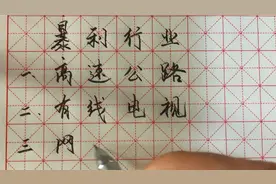 暴利行业
一、高速公路
二、有线电视
三 网